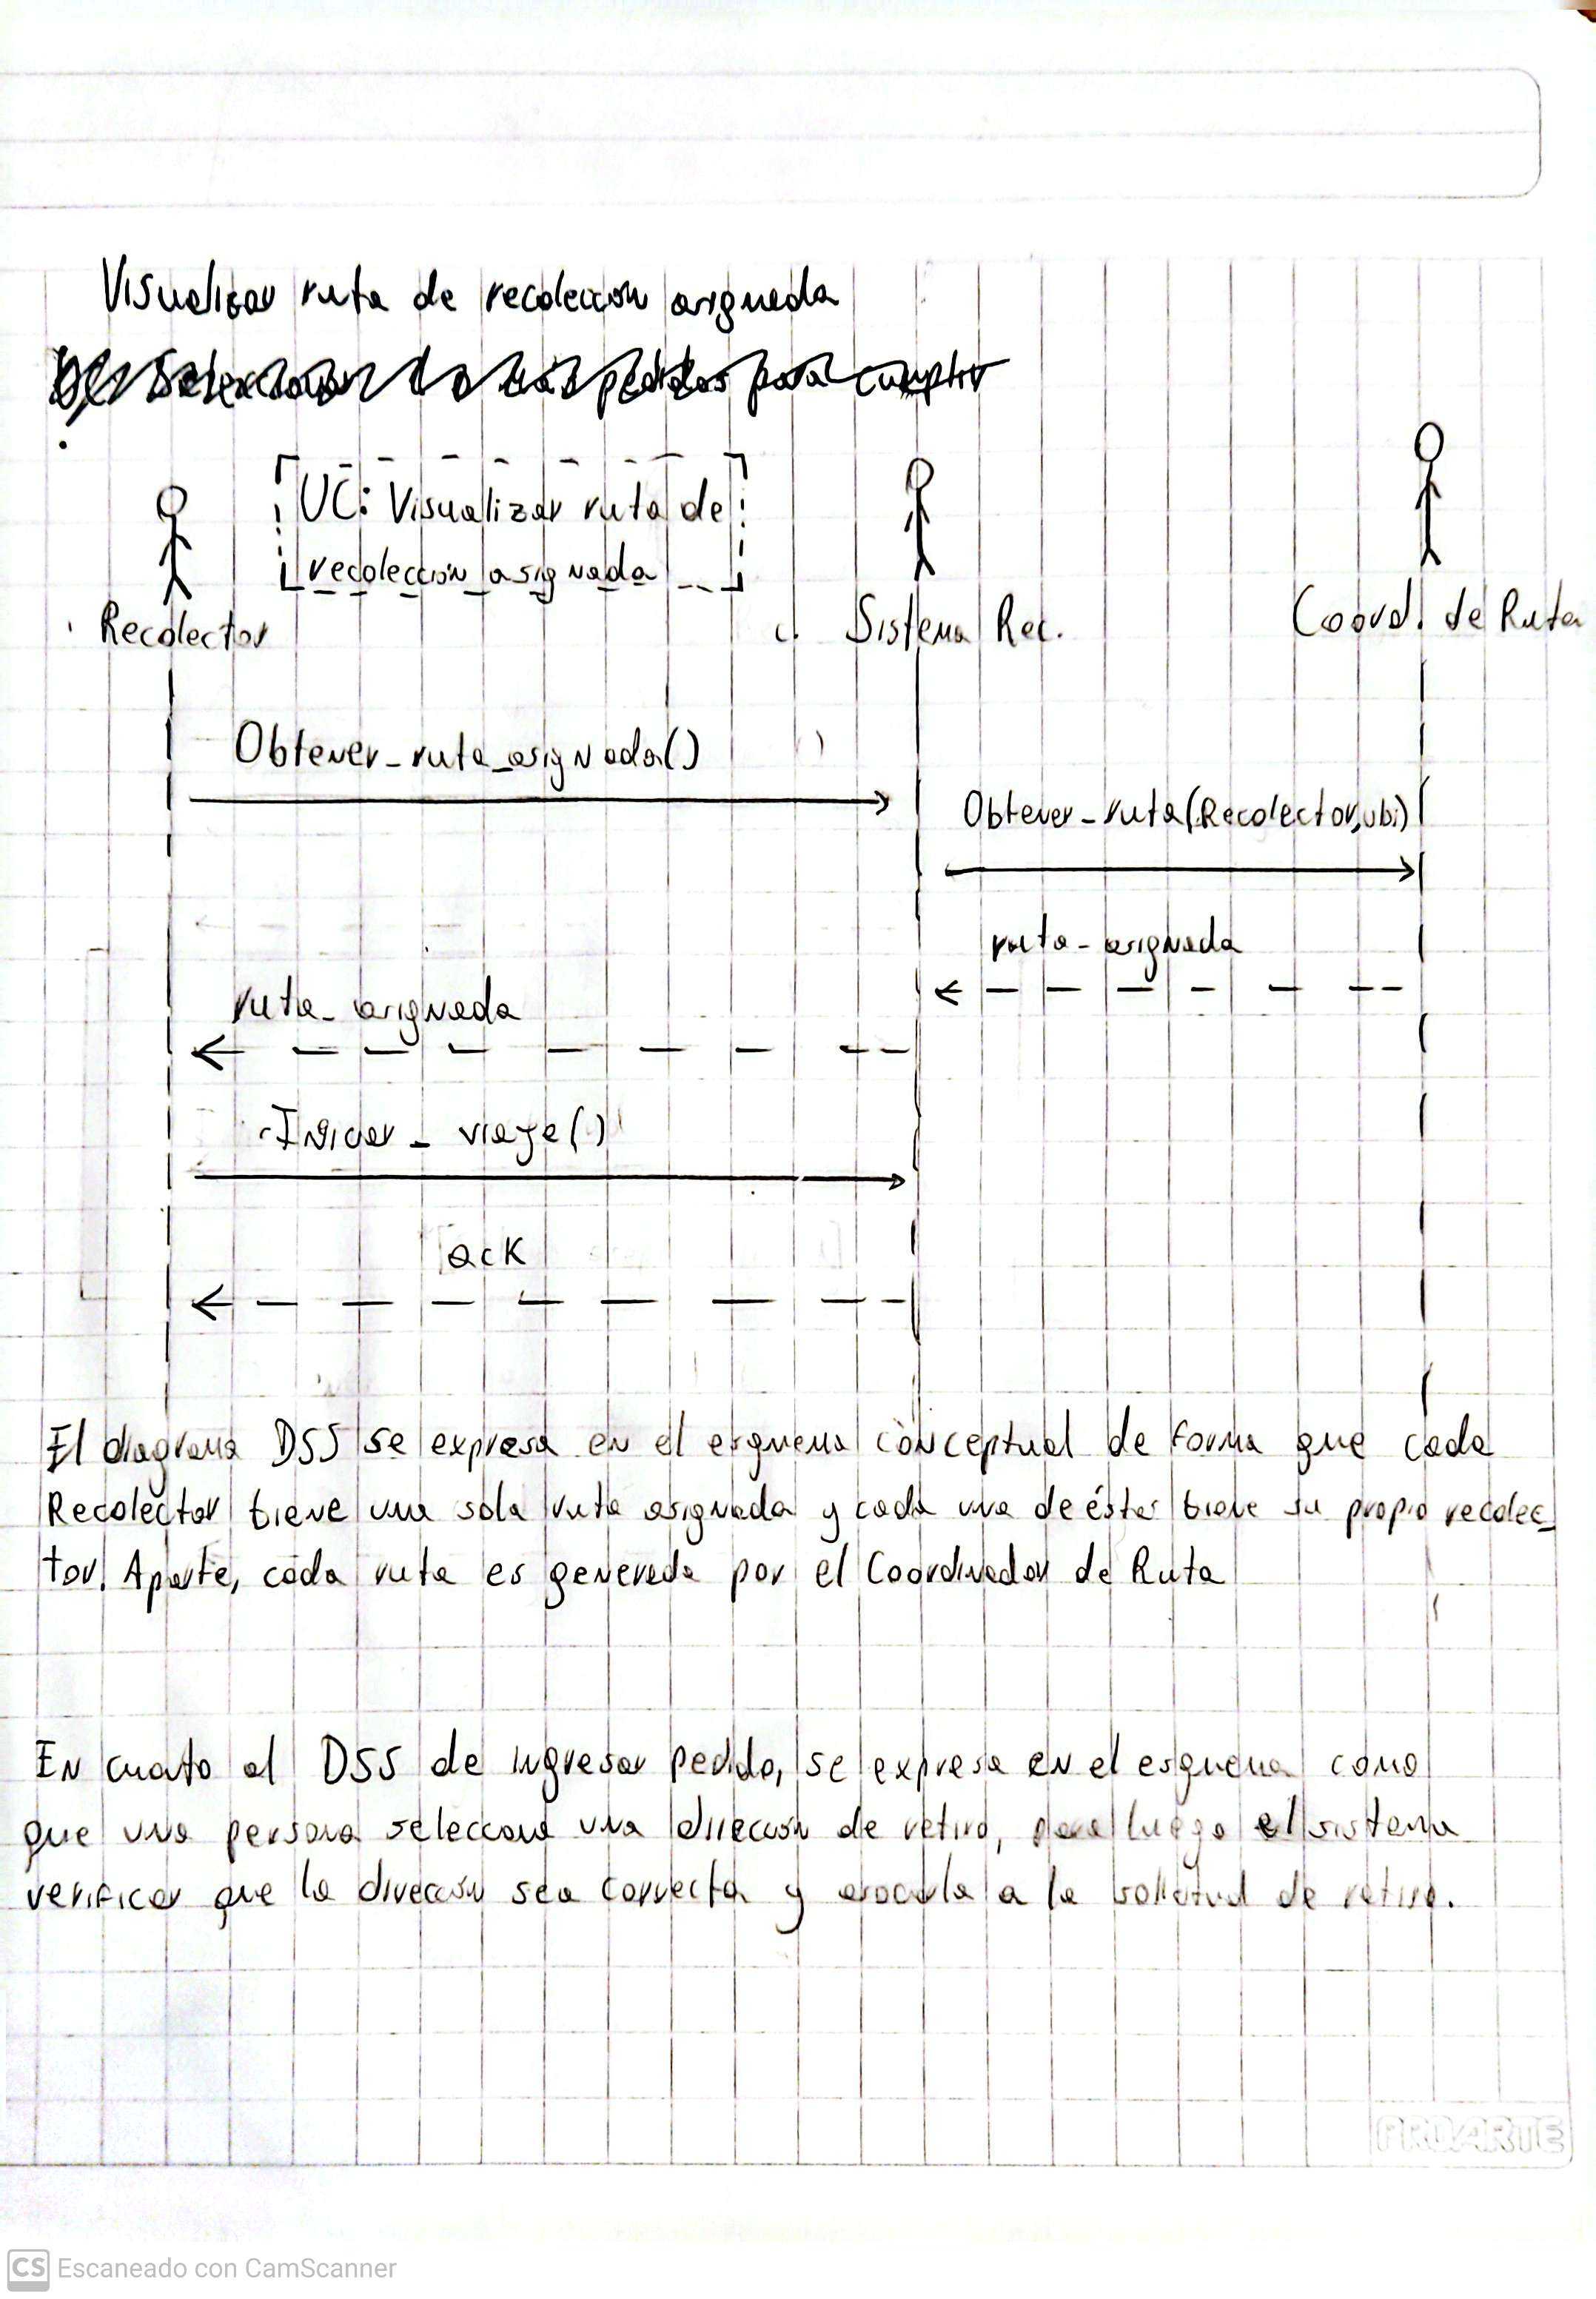 Visualizar ruta de recolección asignada
Seleccionar pedidos para cumplir
UC: Visualizar ruta de
recolección asignada
Recolector
Sistema Rec.
Coord. de Ruta
Obtener_ruta_asignada()
Obtener_ruta(Recolector,ubi)
ruta_asignada
ruta_asignada
Iniciar_viaje()
ack
El diagrama DSS se expresa en el esquema conceptual de forma que cada
Recolector tiene una sola ruta asignada y cada una de éstas tiene su propio recolec_
tor. Aparte, cada ruta es generada por el Coordinador de Ruta
En cuato al DSS de ingresar pedido, se expresa en el esquema como
que una persona selecciona una dirección de retiro, para luego el sistema
verificar que la dirección sea correcta y asociarla a la solicitud de retiro.
PROARTE
CS Escaneado con CamScanner